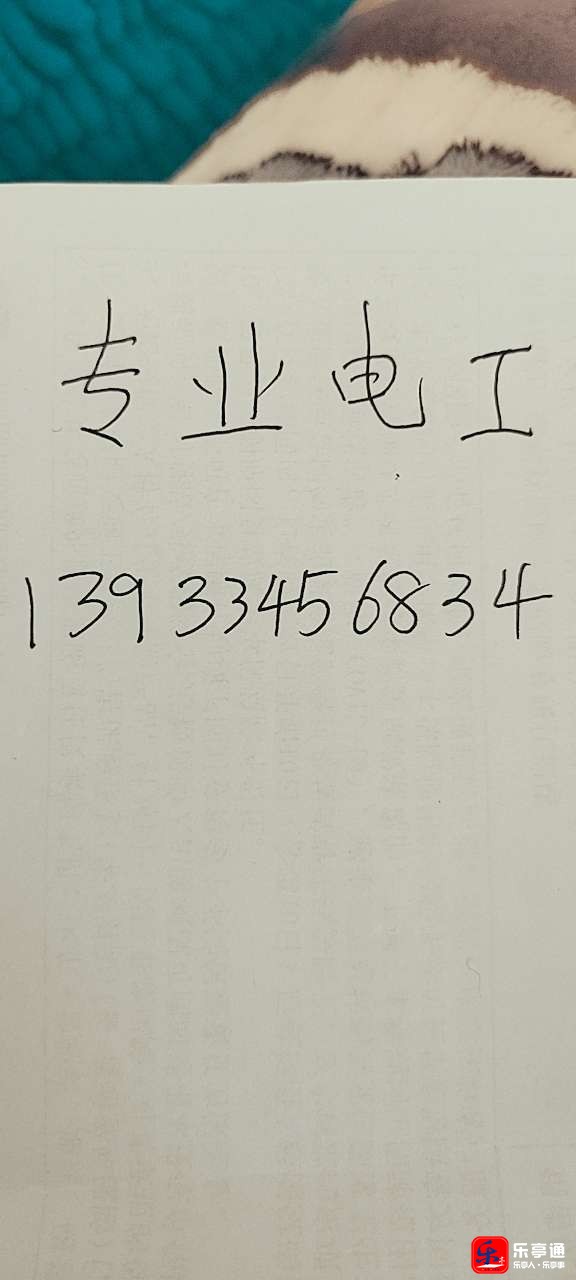 专业电工
13933456834
乐亭通
乐亭人·乐亭事